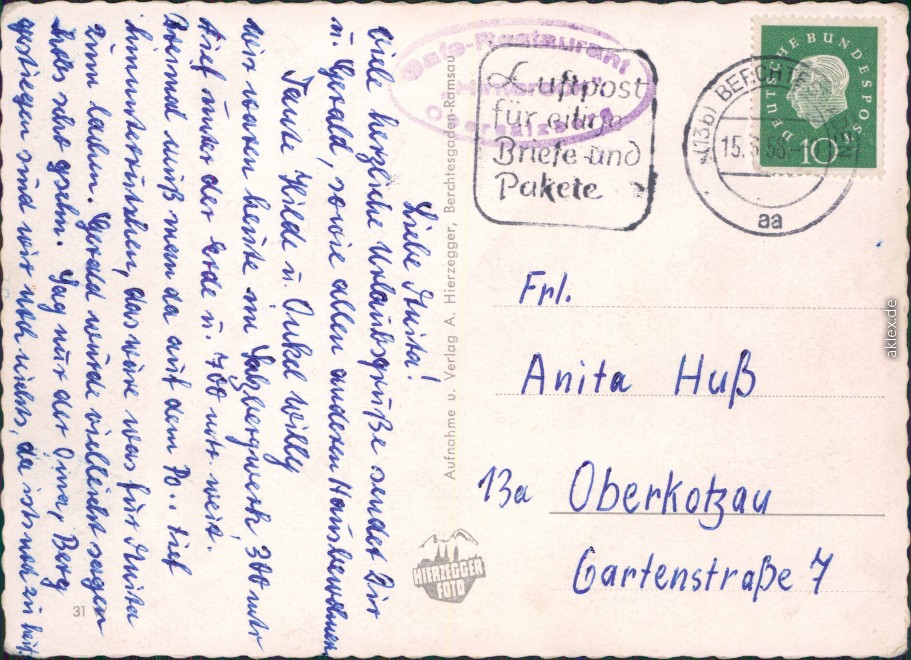 Liebe Anita!
Viele herzliche Urlaubsgrüße sendet Dir
u. Gerald, sowie allen anderen Hausbewohnern
Tante Hilde u. Onkel Willy
Wir waren heute im Salzbergwerk 300 mtr
tief unter der Erde u. 700 mtr. weit.
Dreimal muß man da auf dem Po.. tief
hinunterrutschen, das wäre was für Anita
zum lachen. Gerald würde vielleicht sagen
"das geht gschn. Sag nur der Oma, Berg
gestiegen sind wir noch nichts, da ists uns zu heiß
31
Aufnahme u. Verlag A. Hierzegger, Berchtesgaden-Ramsau
HIERZEGGER
FOTO
Cafe-Restaurant
Obersalzberg
Luftpost
für eilige
Briefe und
Pakete
(13b) BERCHTESGADEN
aa
DEUTSCHE BUNDESPOST
10
Frl.
Anita Huß
13a Oberkotzau
Gartenstraße 7
aklex.de